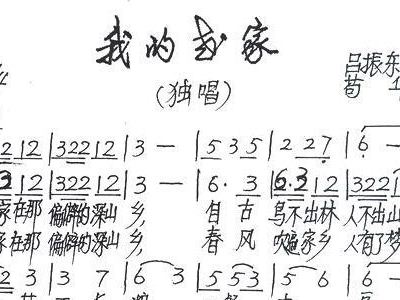 我的老家
(独唱)
吕振东
苟
2 12 | 322 12 | 3 — | 5 3 5 | 2 2 7 | 6 —
3 12 | 322 12 | 3 — | 6· 3 | 6·3 12 | 3221
家在那 偏僻的深山 乡, 自 古 鸟不出林 人不出山
家在那 偏僻的深山 乡, 春 风 吹遍家乡 人有了梦
2 3 | 3 7 | 6 3 | 5 53 | 5 6 | 6 —